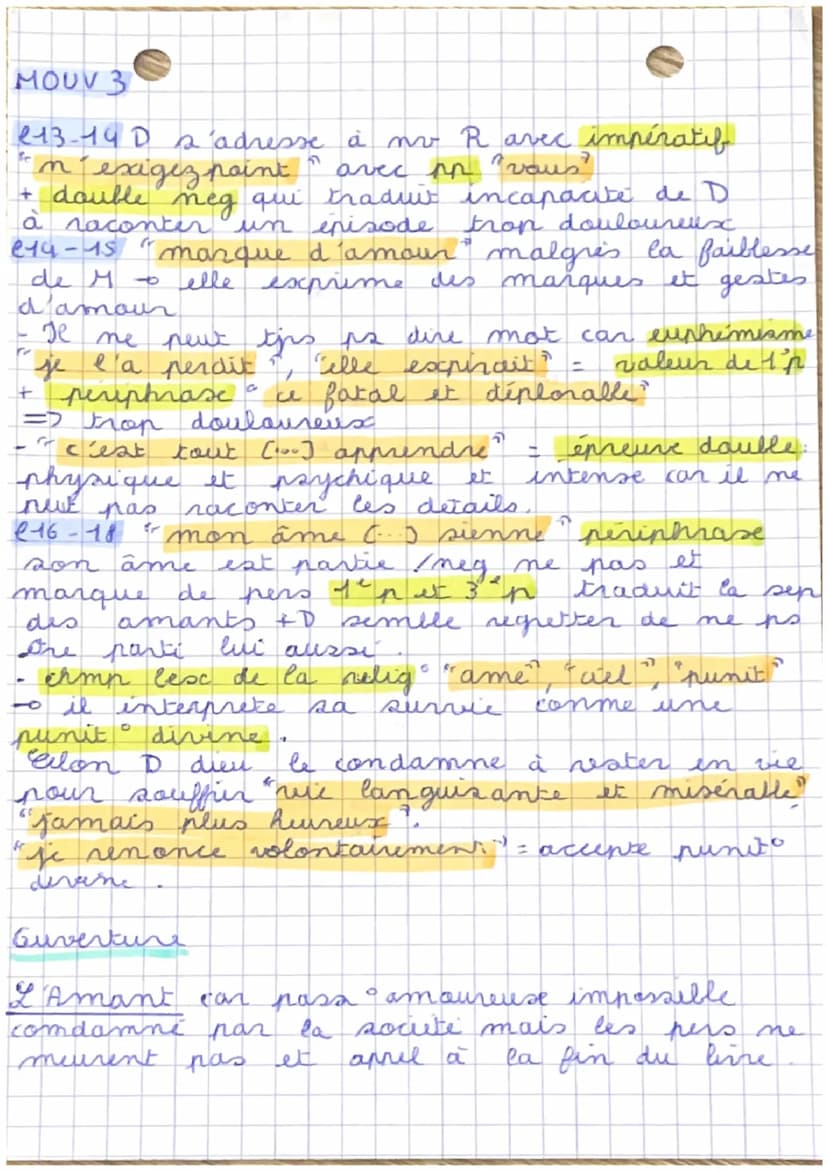 MOUV 3
l13-14 D s'adresse à nv R avec impératif
"n'exigez point" avec pp "vous"
+ double neg qui traduit incapacité de D
à raconter un épisode trop douloureux
l14-15 "marque d'amour" malgrès la faiblesse
de M → elle exprime des marques et gestes
d'amour
- Il ne peut tjrs ps dire mot car euphémisme
"je l'a perdit", "elle expirait" = valeur de 1°p
+ périphrase "ce fatal et déplorable"
=> trop douloureux
- "c'est tout [...] apprendre" = épreuve double :
physique et psychique et intense car il ne
peut pas raconter les détails.
l16-18 "mon âme (...) sienne" périphrase
son âme est partie / neg ne pas et
marque de pers 1e p et 3e p traduit la sep
des amants + D semble regretter de ne ps
être parti lui aussi.
- chmp lesc de la relig° "ame", "ciel", "punit"
→ il interprete sa survie comme une
punit° divine.
Selon D dieu le condamne à rester en vie
pour souffrir "vie languisante et misérable"
"jamais plus heureux".
"je renonce volontairement" = accepte punit°
divine.
Ouverture
L'Amant car pass° amoureuse impossible
comdamné par la société mais les pers ne
meurent pas et appel à la fin du livre.